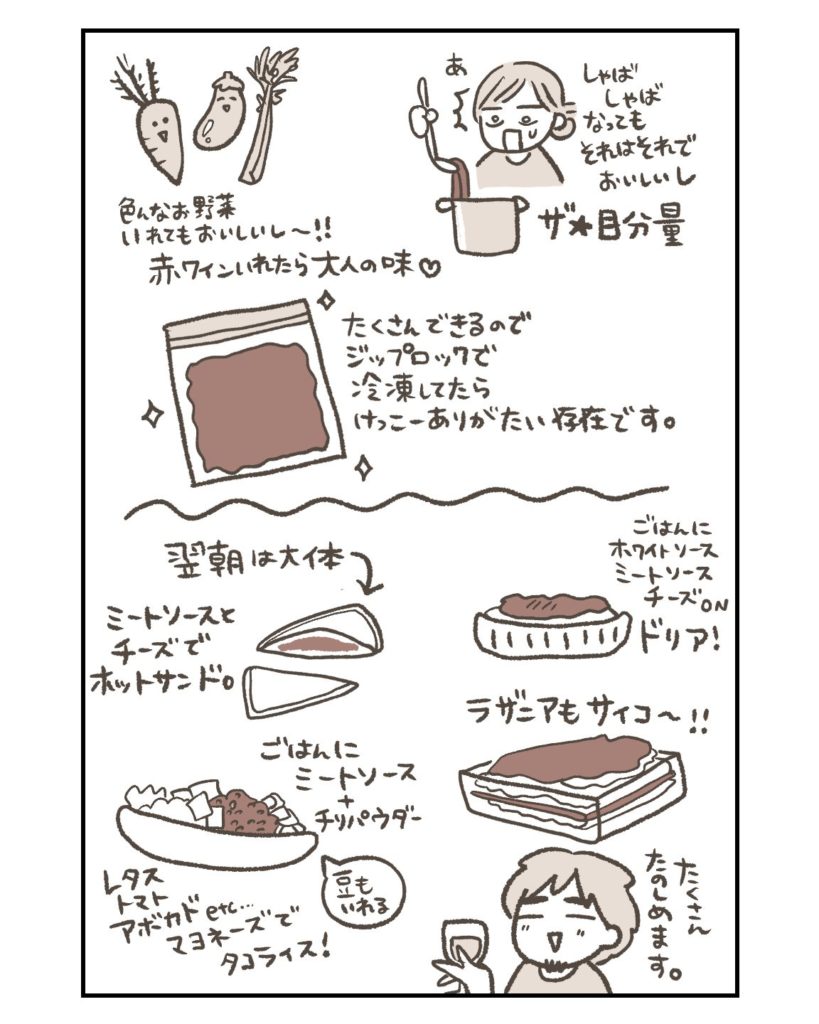 あ
しゃば
しゃば
なっても
それはそれで
おいしいし
ザ★目分量
色んなお野菜
いれてもおいしいし〜!!
赤ワインいれたら大人の味♡
たくさんできるので
ジップロックで
冷凍してたら
けっこーありがたい存在です。
翌朝は大体
ミートソースと
チーズで
ホットサンド。
ごはんに
ホワイトソース
ミートソース
チーズON
ドリア!
ラザニアもサイコ〜!!
ごはんに
ミートソース
+
チリパウダー
豆も
いれる
レタス
トマト
アボカドetc...
マヨネーズで
タコライス!
たくさん
たのしめます。